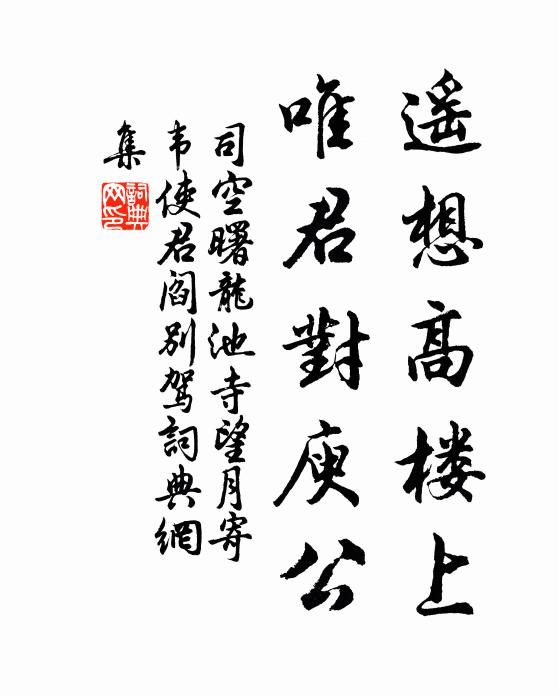 遥想高楼上
唯君對庾公
司空曙龍池寺望月寄
韦使君閻别駕詞典網
集
詞典
网印